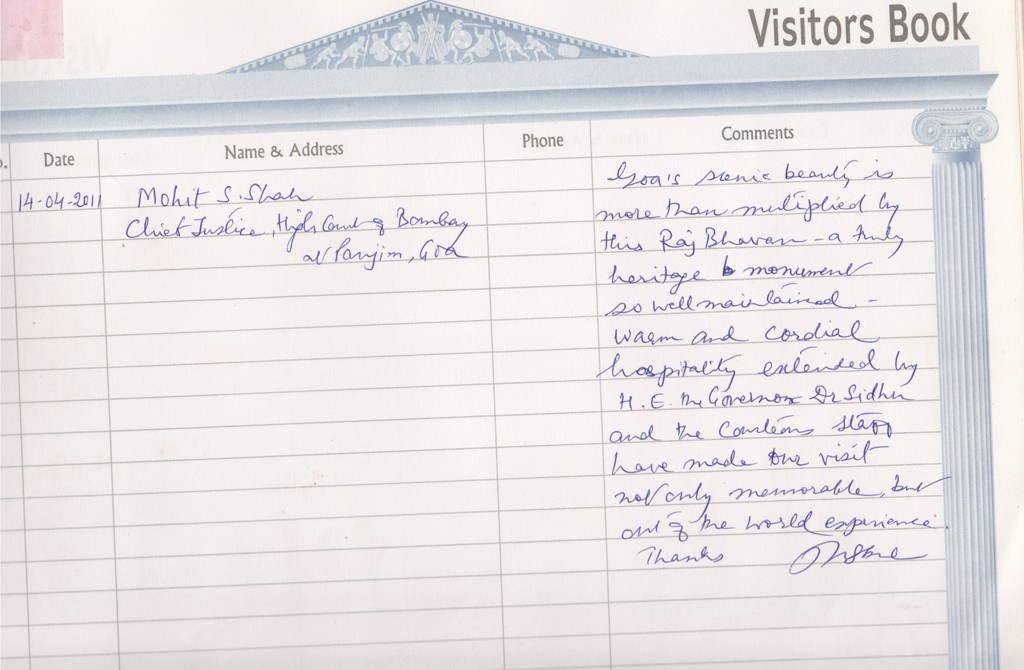 Visitors Book
Date
Name & Address
Phone
Comments
14-04-2011
Mohit S. Shah
Chief Justice, High Court of Bombay
at Panjim, Goa
Goa's scenic beauty is
more than multiplied by
this Raj Bhavan - a truly
heritage monument
so well maintained -
warm and cordial
hospitality extended by
H. E. the Governor Dr Sidhu
and the courteous staff
have made our visit
not only memorable, but
out of the world experience.
Thanks